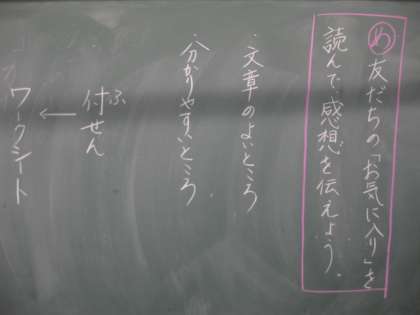 め 友だちの「お気に入り」を
読んで、感想を伝えよう。
・文章のよいところ
・分かりやすいところ
付せん
ふ
↓
ワークシート